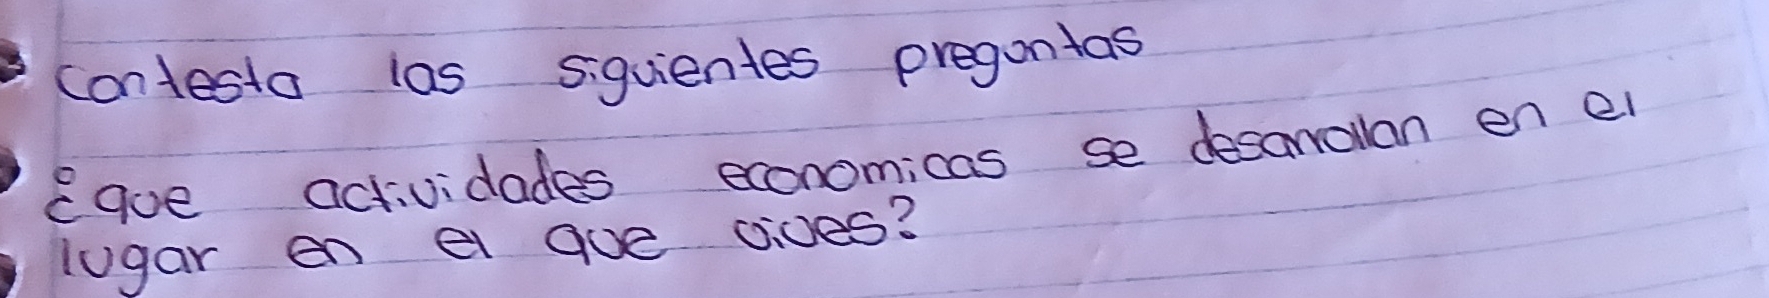 contesta las siguientes preguntas
¿que actividades economicas se desarrollan en el
lugar en el que vives?